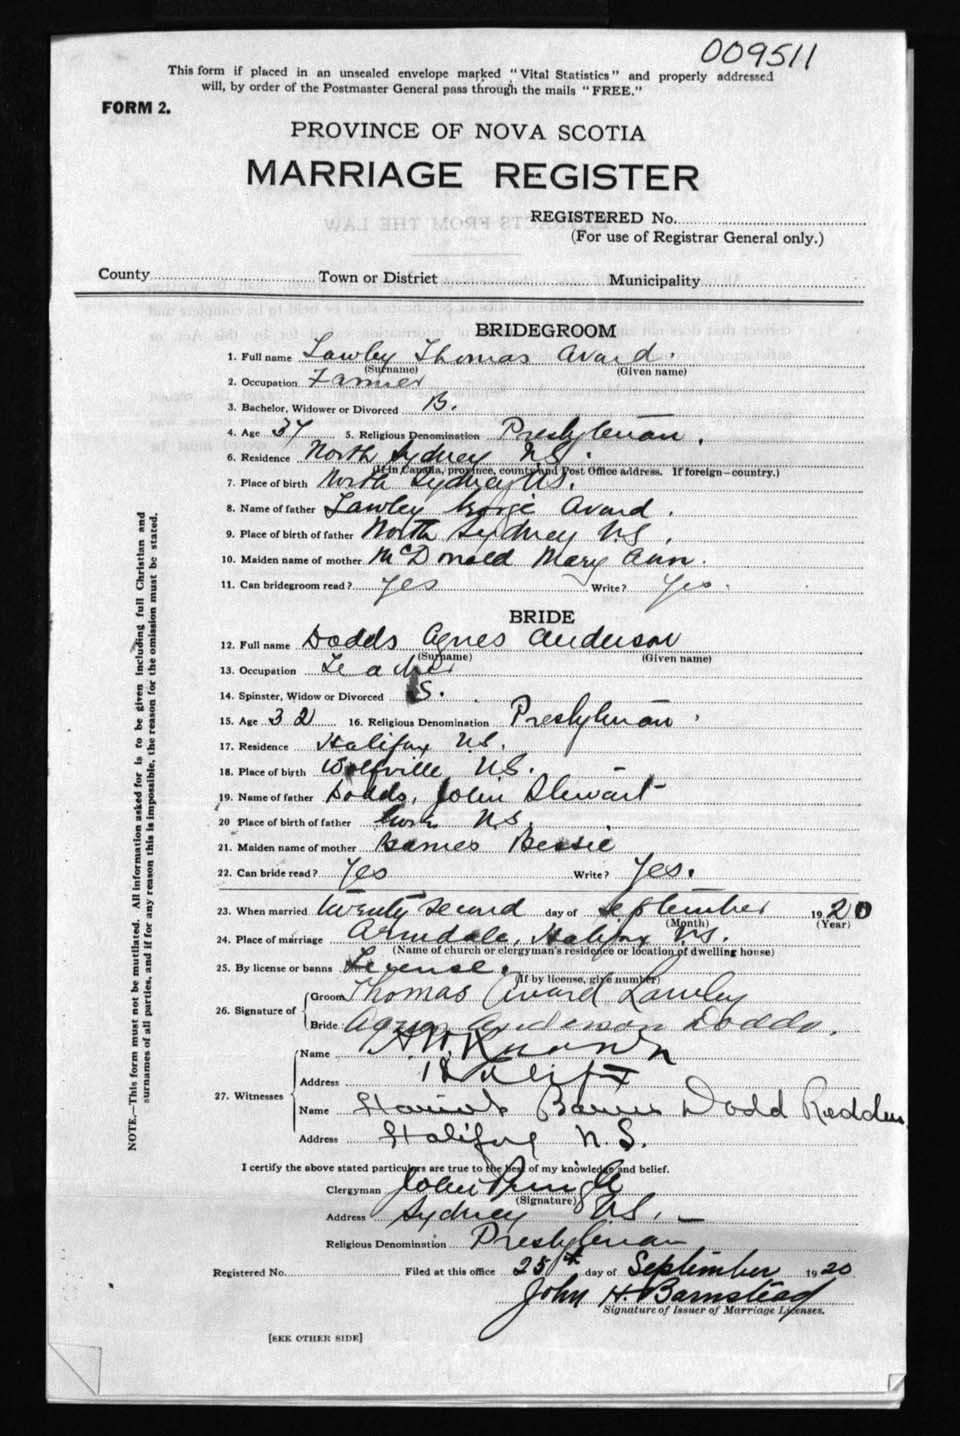 009511
This form if placed in an unsealed envelope marked "Vital Statistics" and properly addressed
will, by order of the Postmaster General pass through the mails "FREE."
FORM 2.
PROVINCE OF NOVA SCOTIA
MARRIAGE REGISTER
REGISTERED No.
(For use of Registrar General only.)
County Town or District Municipality
BRIDEGROOM
1. Full name Lawley Thomas Avard.
(Surname) (Given name)
2. Occupation Farmer
3. Bachelor, Widower or Divorced B.
4. Age 37 5. Religious Denomination Presbyterian.
6. Residence North Sydney N.S.
(If in Canada, province, county and Post Office address. If foreign—country.)
7. Place of birth North Sydney N.S.
8. Name of father Lawley George Avard.
9. Place of birth of father North Sydney N.S.
10. Maiden name of mother McDonald Mary Ann.
11. Can bridegroom read? Yes Write? Yes.
BRIDE
12. Full name Dodds Agnes Anderson
(Surname) (Given name)
13. Occupation Teacher
14. Spinster, Widow or Divorced S.
15. Age 32 16. Religious Denomination Presbyterian
17. Residence Halifax N.S.
18. Place of birth Wolfville N.S.
19. Name of father Dodds, John Stewart
20 Place of birth of father N.S.
21. Maiden name of mother Barnes Bessie
22. Can bride read? Yes Write? Yes.
23. When married twenty second day of September 1920
(Month) (Year)
24. Place of marriage Armdale, Halifax N.S.
(Name of church or clergyman's residence or location of dwelling house)
25. By license or banns License.
(If by license, give number)
26. Signature of Groom Thomas Avard Lawley
Bride Agnes Anderson Dodds.
27. Witnesses
Name H.W.
Address Halifax
Name Barnes Dodd Redden
Address Halifax N.S.
I certify the above stated particulars are true to the best of my knowledge and belief.
Clergyman John Pringle
(Signature)
Address Sydney N.S.
Religious Denomination Presbyterian
Registered No. Filed at this office 25th day of September 1920
John H. Barnstead
Signature of Issuer of Marriage Licenses.
[SEE OTHER SIDE]
NOTE.—This form must not be mutilated. All information asked for is to be given including full Christian and
surnames of all parties, and if for any reason this is impossible, the reason for the omission must be stated.
EXTRACTS FROM THE LAW